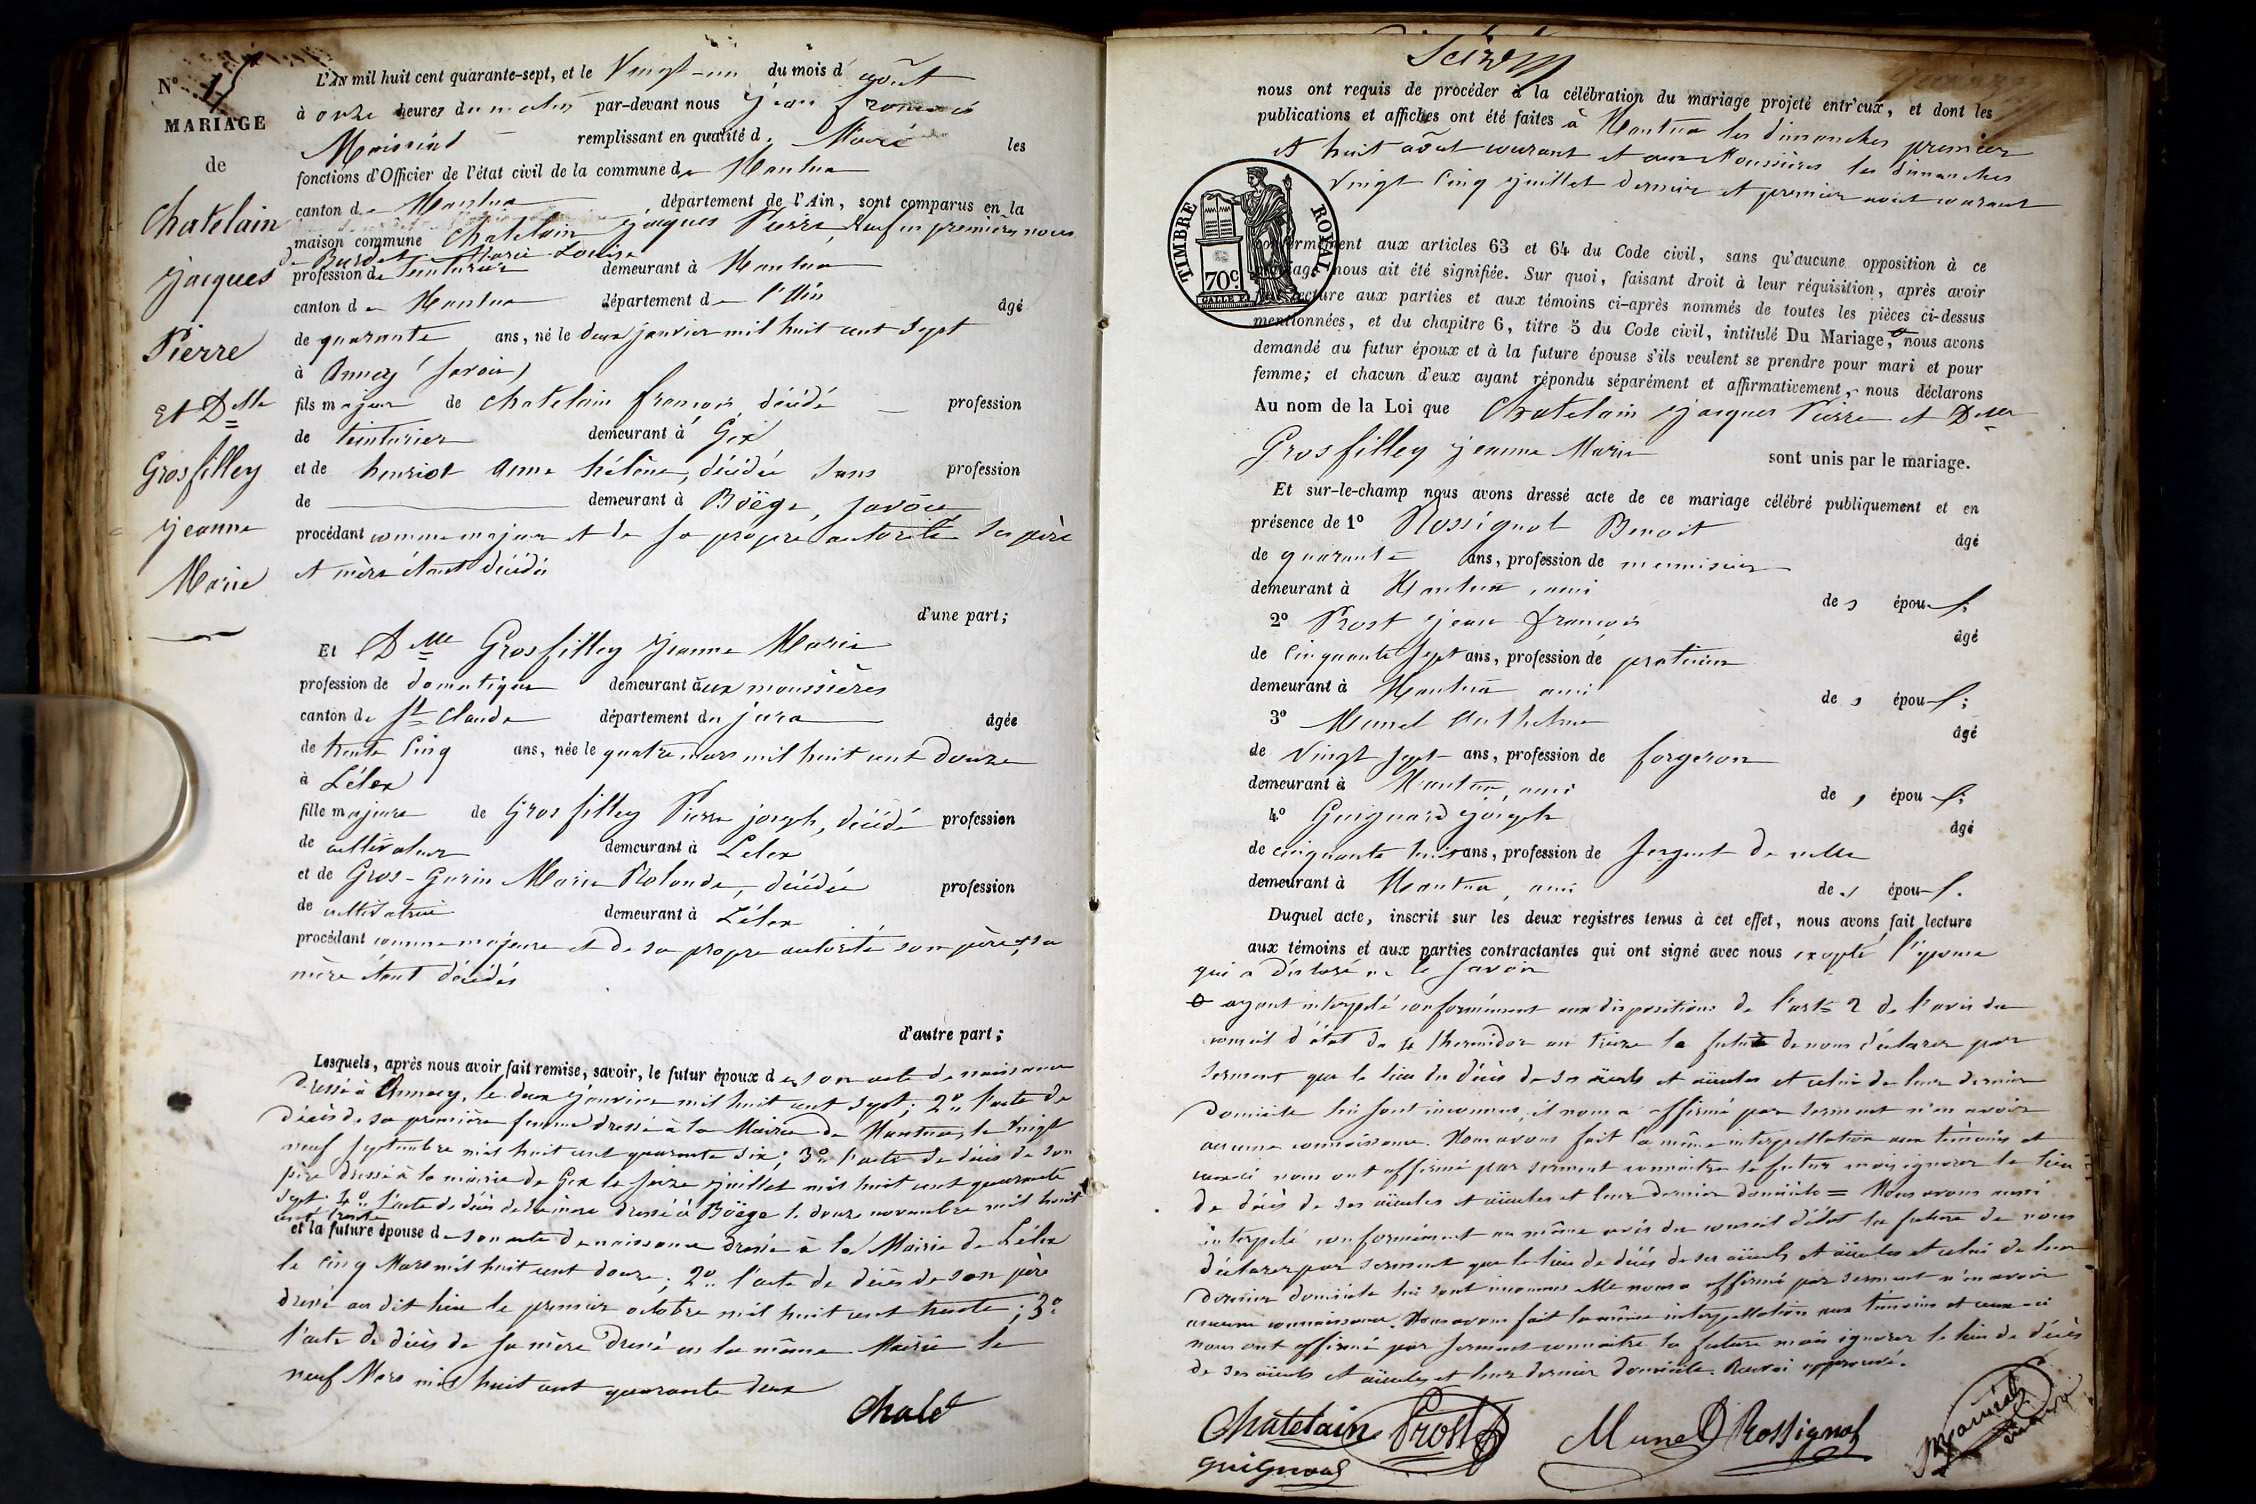 N° 17
MARIAGE
de
Chatelain
Jacques
Pierre
Et Dlle
Grosfilley
Jeanne
Marie
L'AN mil huit cent quarante-sept, et le Vingt-un du mois d'août
à onze heures du matin par-devant nous Jean François
remplissant en qualité de Maire les
fonctions d'Officier de l'état civil de la commune de Nantua
canton de Nantua département de l'Ain, sont comparus en la
maison commune Chatelain Jacques Pierre, veuf en premières noces
de Marie Louise
profession de teinturier demeurant à Nantua
canton de Nantua département de l'Ain âgé
de quarante ans, né le deux janvier mil huit cent sept
à Annecy (Savoie)
fils majeur de Chatelain françois, décédé profession
de teinturier demeurant à Gex
et de henriot Anne hélène, décédée Sans profession
de demeurant à Boëge, Savoie
procédant comme majeur et de sa propre autorité ses père
et mère étant décédés
d'une part;
Et Dlle Grosfilley Jeanne Marie
profession de domestique demeurant aux moussières
canton de St Claude département du jura âgée
de trente cinq ans, née le quatre mars mil huit cent douze
à Lélex
fille majeure de Grosfilley Pierre joseph, décédé profession
de cultivateur demeurant à Lelex
et de Gros-Gurin Marie Rolande, décédée profession
de cultivatrice demeurant à Lélex
procédant comme majeure et de sa propre autorité son père et sa
mère étant décédés
d'autre part;
Lesquels, après nous avoir fait remise, savoir, le futur époux de son acte de naissance
dressé à Annecy, le deux Janvier mil huit cent sept; 2° l'acte de
décès de sa première femme dressé à la Mairie de Nantua, le Vingt
neuf Septembre mil huit cent quarante six; 3° l'acte de décès de son
père dressé à la mairie de Gex le seize juillet mil huit cent quarante
sept 4° l'acte de décès de sa mère dressé à Boëge le douze novembre mil huit
cent trente
et la future épouse de son acte de naissance dressé à la Mairie de Lélex
le cinq Mars mil huit cent douze; 2° l'acte de décès de son père
dressé au dit lieu le premier octobre mil huit cent trente; 3°
l'acte de décès de sa mère dressé en la même Mairie le
neuf Mars mil huit cent quarante deux
nous ont requis de procéder à la célébration du mariage projeté entr'eux, et dont les
publications et affiches ont été faites à Nantua les dimanches premier
et huit août courant et aux Moussières les dimanches
vingt cinq juillet dernier et premier août courant
TIMBRE ROYAL
70c.
conformément aux articles 63 et 64 du Code civil, sans qu'aucune opposition à ce
mariage nous ait été signifiée. Sur quoi, faisant droit à leur réquisition, après avoir
fait lecture aux parties et aux témoins ci-après nommés de toutes les pièces ci-dessus
mentionnées, et du chapitre 6, titre 5 du Code civil, intitulé Du Mariage, nous avons
demandé au futur époux et à la future épouse s'ils veulent se prendre pour mari et pour
femme; et chacun d'eux ayant répondu séparément et affirmativement, nous déclarons
Au nom de la Loi que Chatelain Jacques Pierre et Dlle
Grosfilley Jeanne Marie sont unis par le mariage.
Et sur-le-champ nous avons dressé acte de ce mariage célébré publiquement et en
présence de 1° Rossignol Benoit âgé
de quarante ans, profession de menuisier
demeurant à Nantua, ami des époux.
2° Prost Jean françois âgé
de cinquante sept ans, profession de praticien
demeurant à Nantua ami des époux;
3° Munet Anthelme âgé
de Vingt sept ans, profession de forgeron
demeurant à Nantua, ami des époux;
4° Guignard Joseph âgé
de cinquante huit ans, profession de sergent de ville
demeurant à Nantua, ami des époux.
Duquel acte, inscrit sur les deux registres tenus à cet effet, nous avons fait lecture
aux témoins et aux parties contractantes qui ont signé avec nous excepté l'épouse
qui a déclaré ne le savoir
ayant interpelé conformément aux dispositions de l'art 2 de l'avis du
conseil d'état du 4 thermidor an treize le futur de nous déclarer par
serment que le lieu du décès de ses aïeuls et aïeules et celui de leur dernier
domicile lui sont inconnus, il nous a affirmé par serment n'en avoir
aucune connaissance. Nous avons fait la même interpellation aux témoins et
ceux-ci nous ont affirmé par serment connaitre le futur mais ignorer le lieu
de décès de ses aïeules et aïeules et leur dernier domicile = Nous avons aussi
interpelé conformément au même avis du conseil d'état la future de nous
déclarer par serment que le lieu de décès de ses aïeuls et aïeules et celui de leur
dernier domicile lui sont inconnus elle nous a affirmé par serment n'en avoir
aucune connaissance. Nous avons fait la même interpellation aux témoins et ceux-ci
nous ont affirmé par serment connaitre la future mais ignorer le lieu de décès
de ses aïeuls et aïeules et leur dernier domicile. Renvoi approuvé.
Châtelain Prost Munet Rossignol
guignard